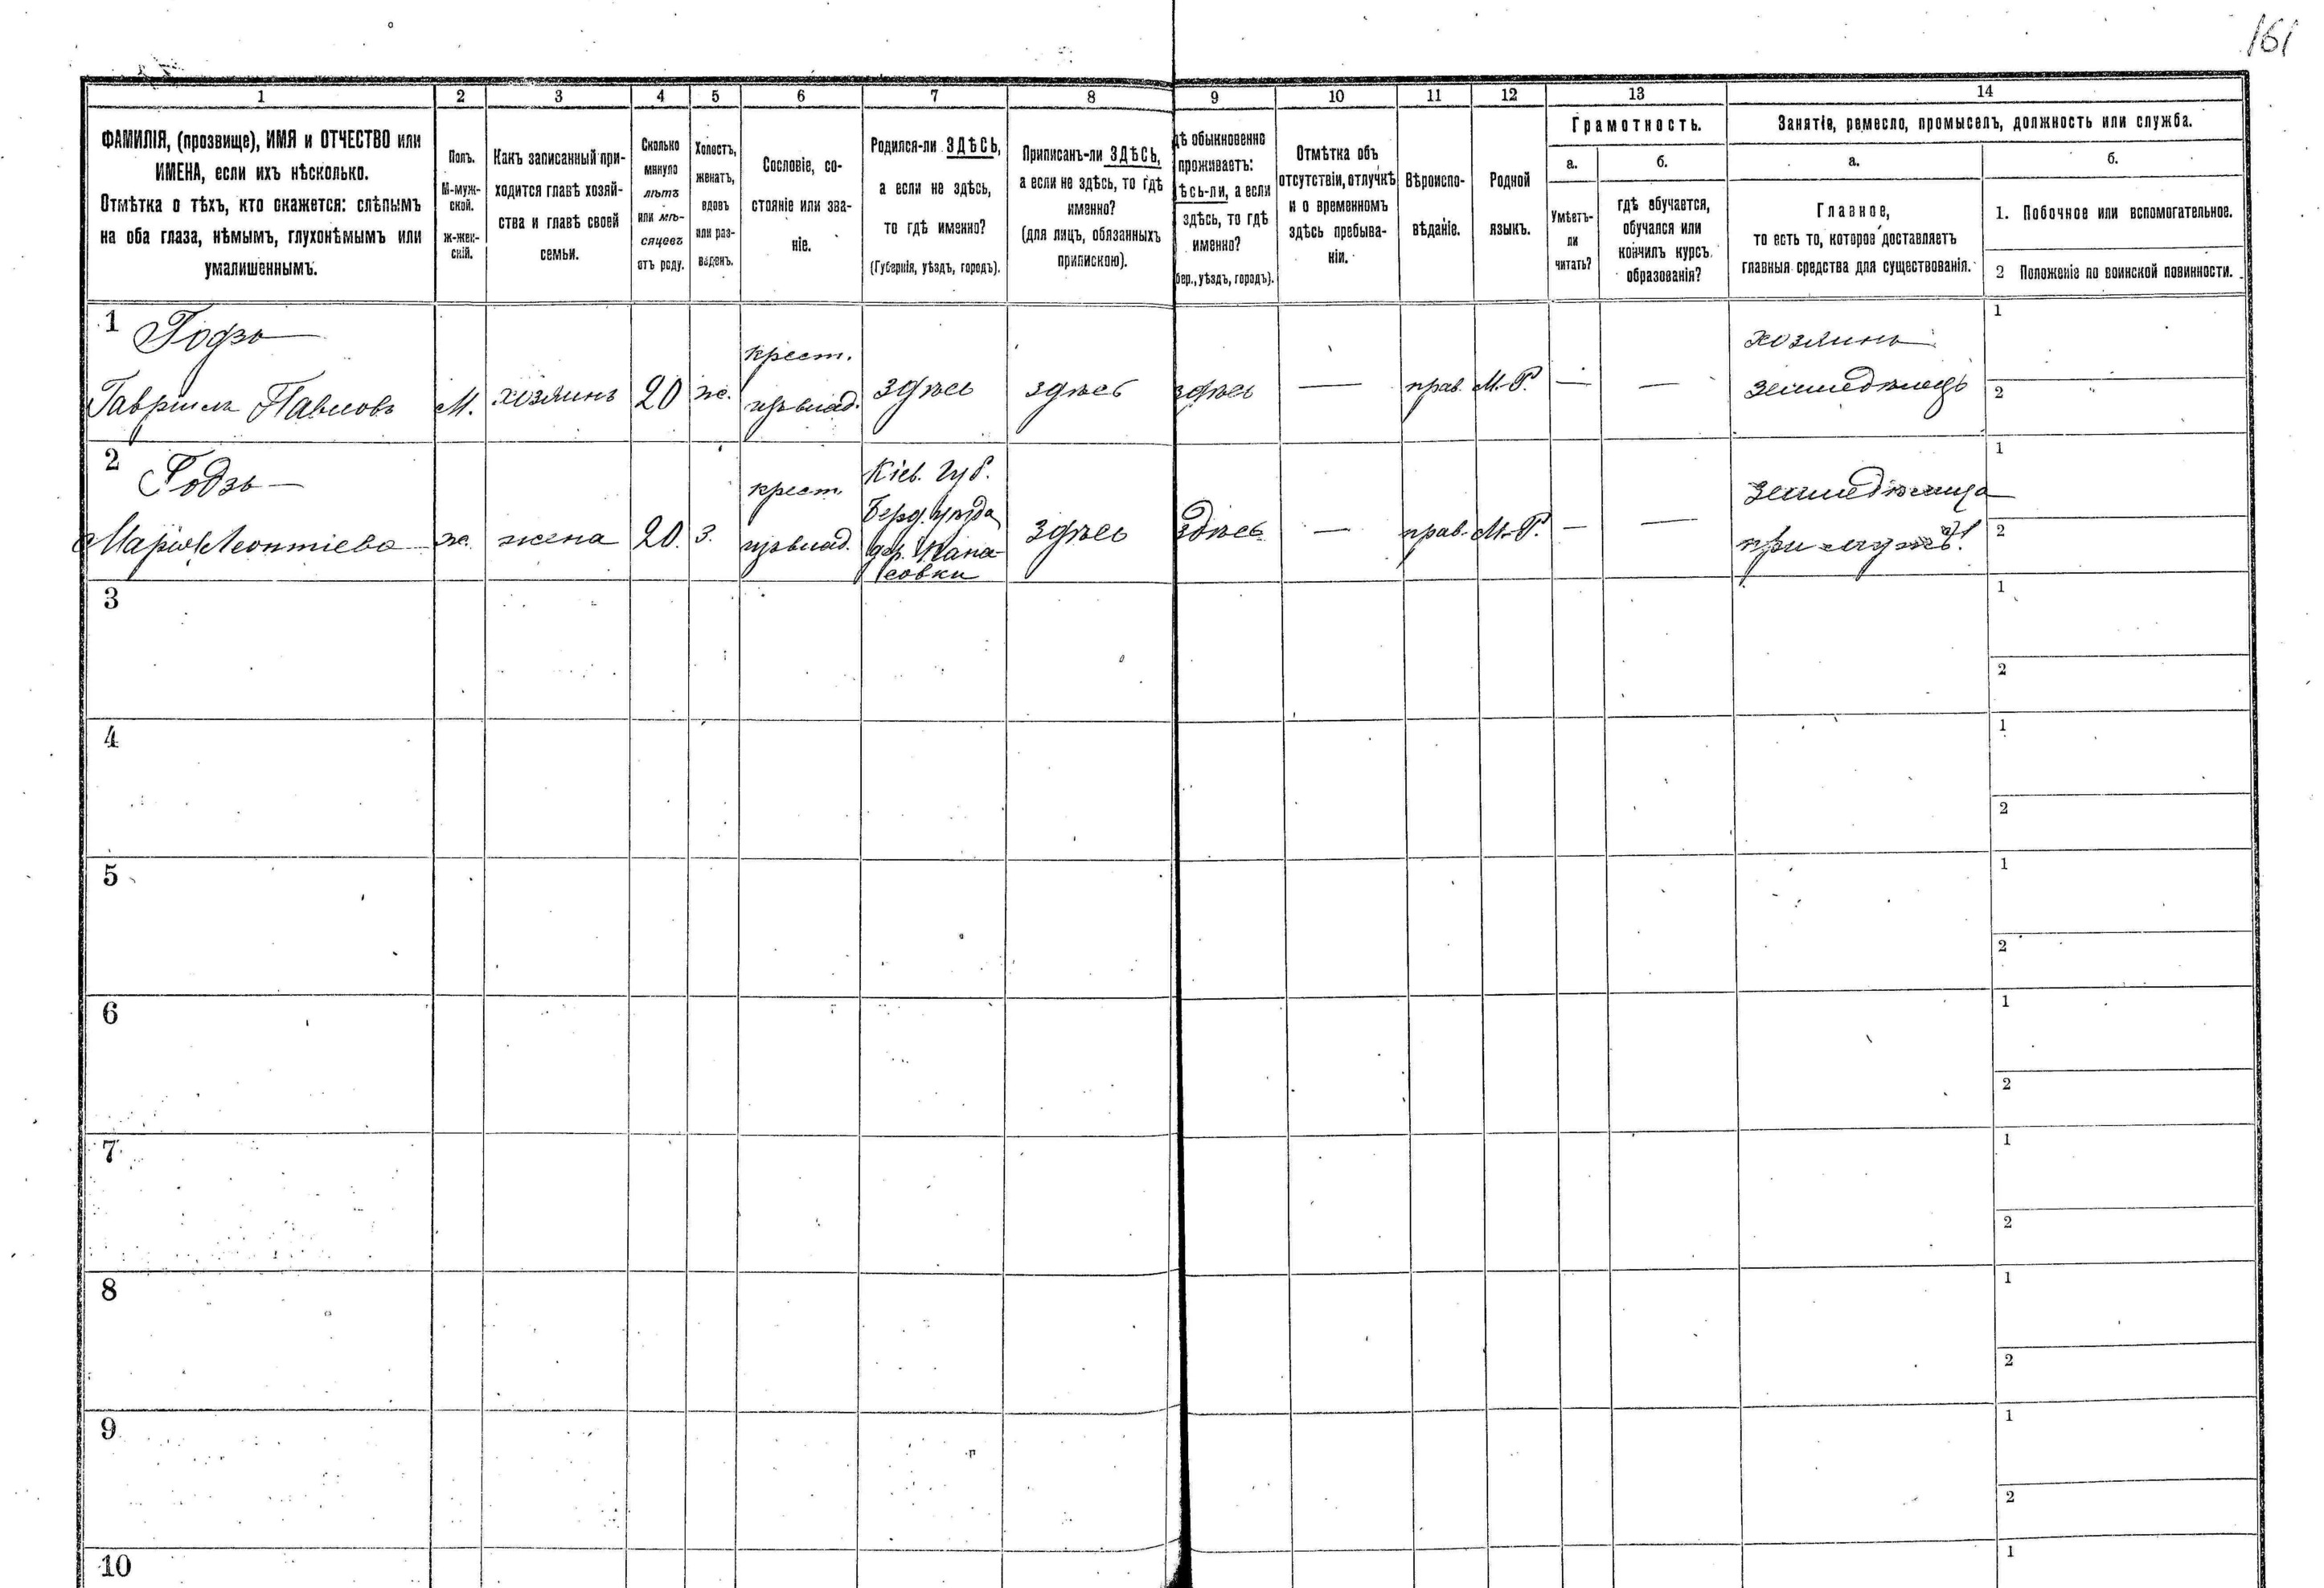 161
1 2 3 4 5 6 7 8 9 10 11 12 13 14
ФАМИЛІЯ, (прозвище), ИМЯ и ОТЧЕСТВО или
ИМЕНА, если ихъ нѣсколько.
Отмѣтка о тѣхъ, кто окажется: слѣпымъ
на оба глаза, нѣмымъ, глухонѣмымъ или
умалишеннымъ.
Полъ.
М-муж-
ской.
Ж-жен-
скій.
Какъ записанный при-
ходится главѣ хозяй-
ства и главѣ своей
семьи.
Сколько
минуло
лѣтъ
или мѣ-
сяцевъ
отъ роду.
Холостъ,
женатъ,
вдовъ
или раз-
веденъ.
Сословіе, со-
стояніе или зва-
ніе.
Родился-ли ЗДѢСЬ,
а если не здѣсь,
то гдѣ именно?
(Губернія, уѣздъ, городъ).
Приписанъ-ли ЗДѢСЬ,
а если не здѣсь, то гдѣ
именно?
(для лицъ, обязанныхъ
припискою).
дѣ обыкновенно
проживаетъ:
ѣсь-ли, а если
здѣсь, то гдѣ
именно?
бер., уѣздъ, городъ).
Отмѣтка объ
отсутствіи, отлучкѣ
и о временномъ
здѣсь пребыва-
ніи.
Вѣроиспо-
вѣданіе.
Родной
языкъ.
Грамотность.
а.
Умѣетъ-
ли
читать?
б.
гдѣ обучается,
обучался или
кончилъ курсъ
образованія?
Занятіе, ремесло, промыселъ, должность или служба.
а.
Главное,
то есть то, которое доставляетъ
главныя средства для существованія.
б.
1. Побочное или вспомогательное.
2 Положеніе по воинской повинности.
1 Годзь — крест. хозяинъ 1
Гавріилъ Павловъ М. хозяинъ 20 ж. здѣсь здѣсь здѣсь — прав. М.-Р. — — земледѣлецъ 2
2 Годзь — крест. Кіев. губ. земледѣлица 1
Марія Леонтіева ж. жена 20. з. Берд. уѣзда здѣсь здѣсь — прав. М.-Р. — — при мужѣ. 2
дер.
совки
3 1
2
4 1
2
5 1
2
6 1
2
7 1
2
8 1
2
9 1
2
10 1